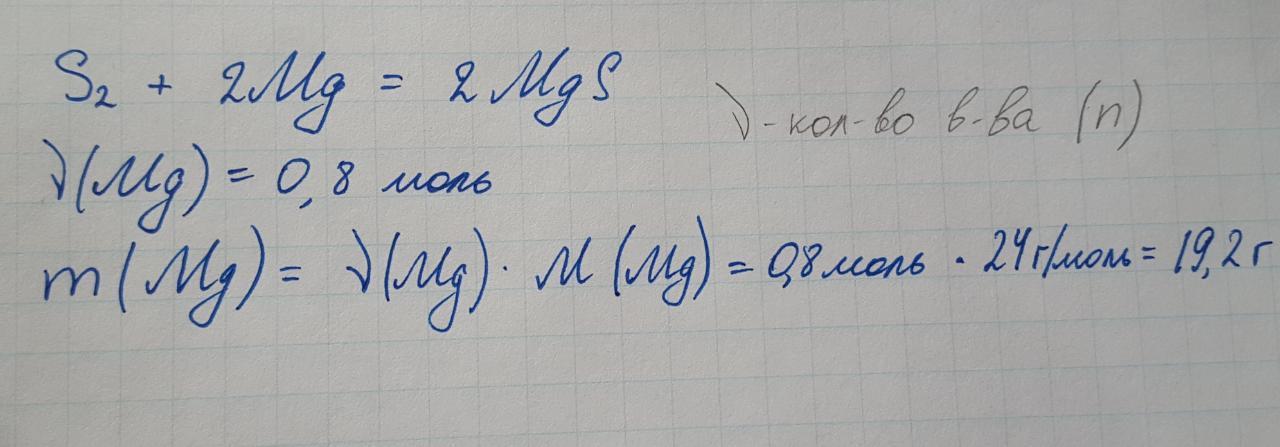 S₂ + 2Mg = 2MgS
ν - кол-во в-ва (n)
ν(Mg) = 0,8 моль
m(Mg) = ν(Mg) · M(Mg) = 0,8 моль · 24 г/моль = 19,2 г